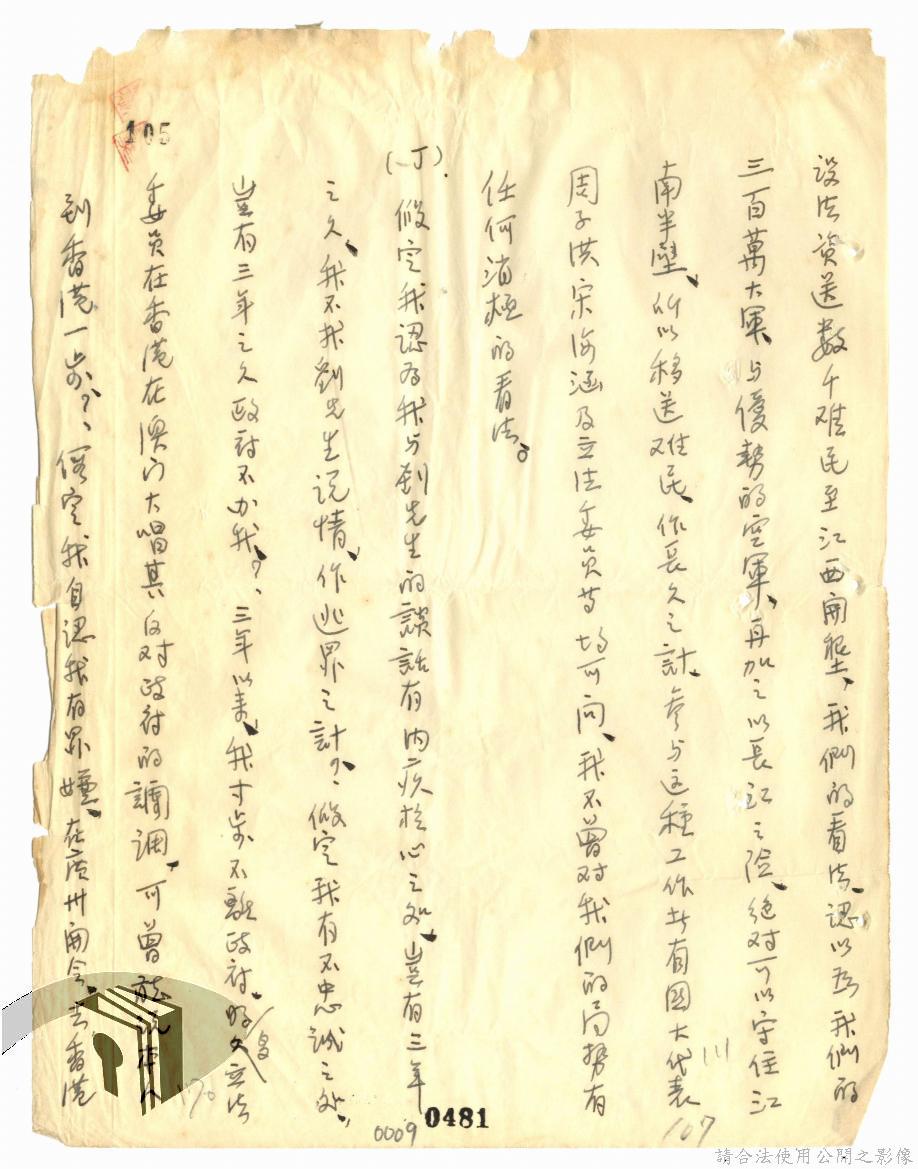 設法資送數千难民至江西開墾，我們的看法，認以為我們的
三百萬大軍，与優勢的空軍，再加之以長江之险，絕对可以守住江
南半壁，所以移送难民，作長久之計，参与这種工作者有國大代表
周子洪宋海涵及立法委員等均可问，我不曾对我們的局勢有
任何消極的看法。
(丁)．假定我認為我与劉先生的談話有内疚於心之处，豈有三年
之久，我不找劉先生說情，作逃罪之計？假定我有不忠誠之处，
豈有三年之久政府不办我？三年以来，我寸步不離政府，好多立法
委員在香港在澳门大唱其反对政府的論調，可曾
到香港一步？假定我自認我有罪嫌，在广州開会，去香港
105
0481
0009
107
170
請合法使用公開之影像